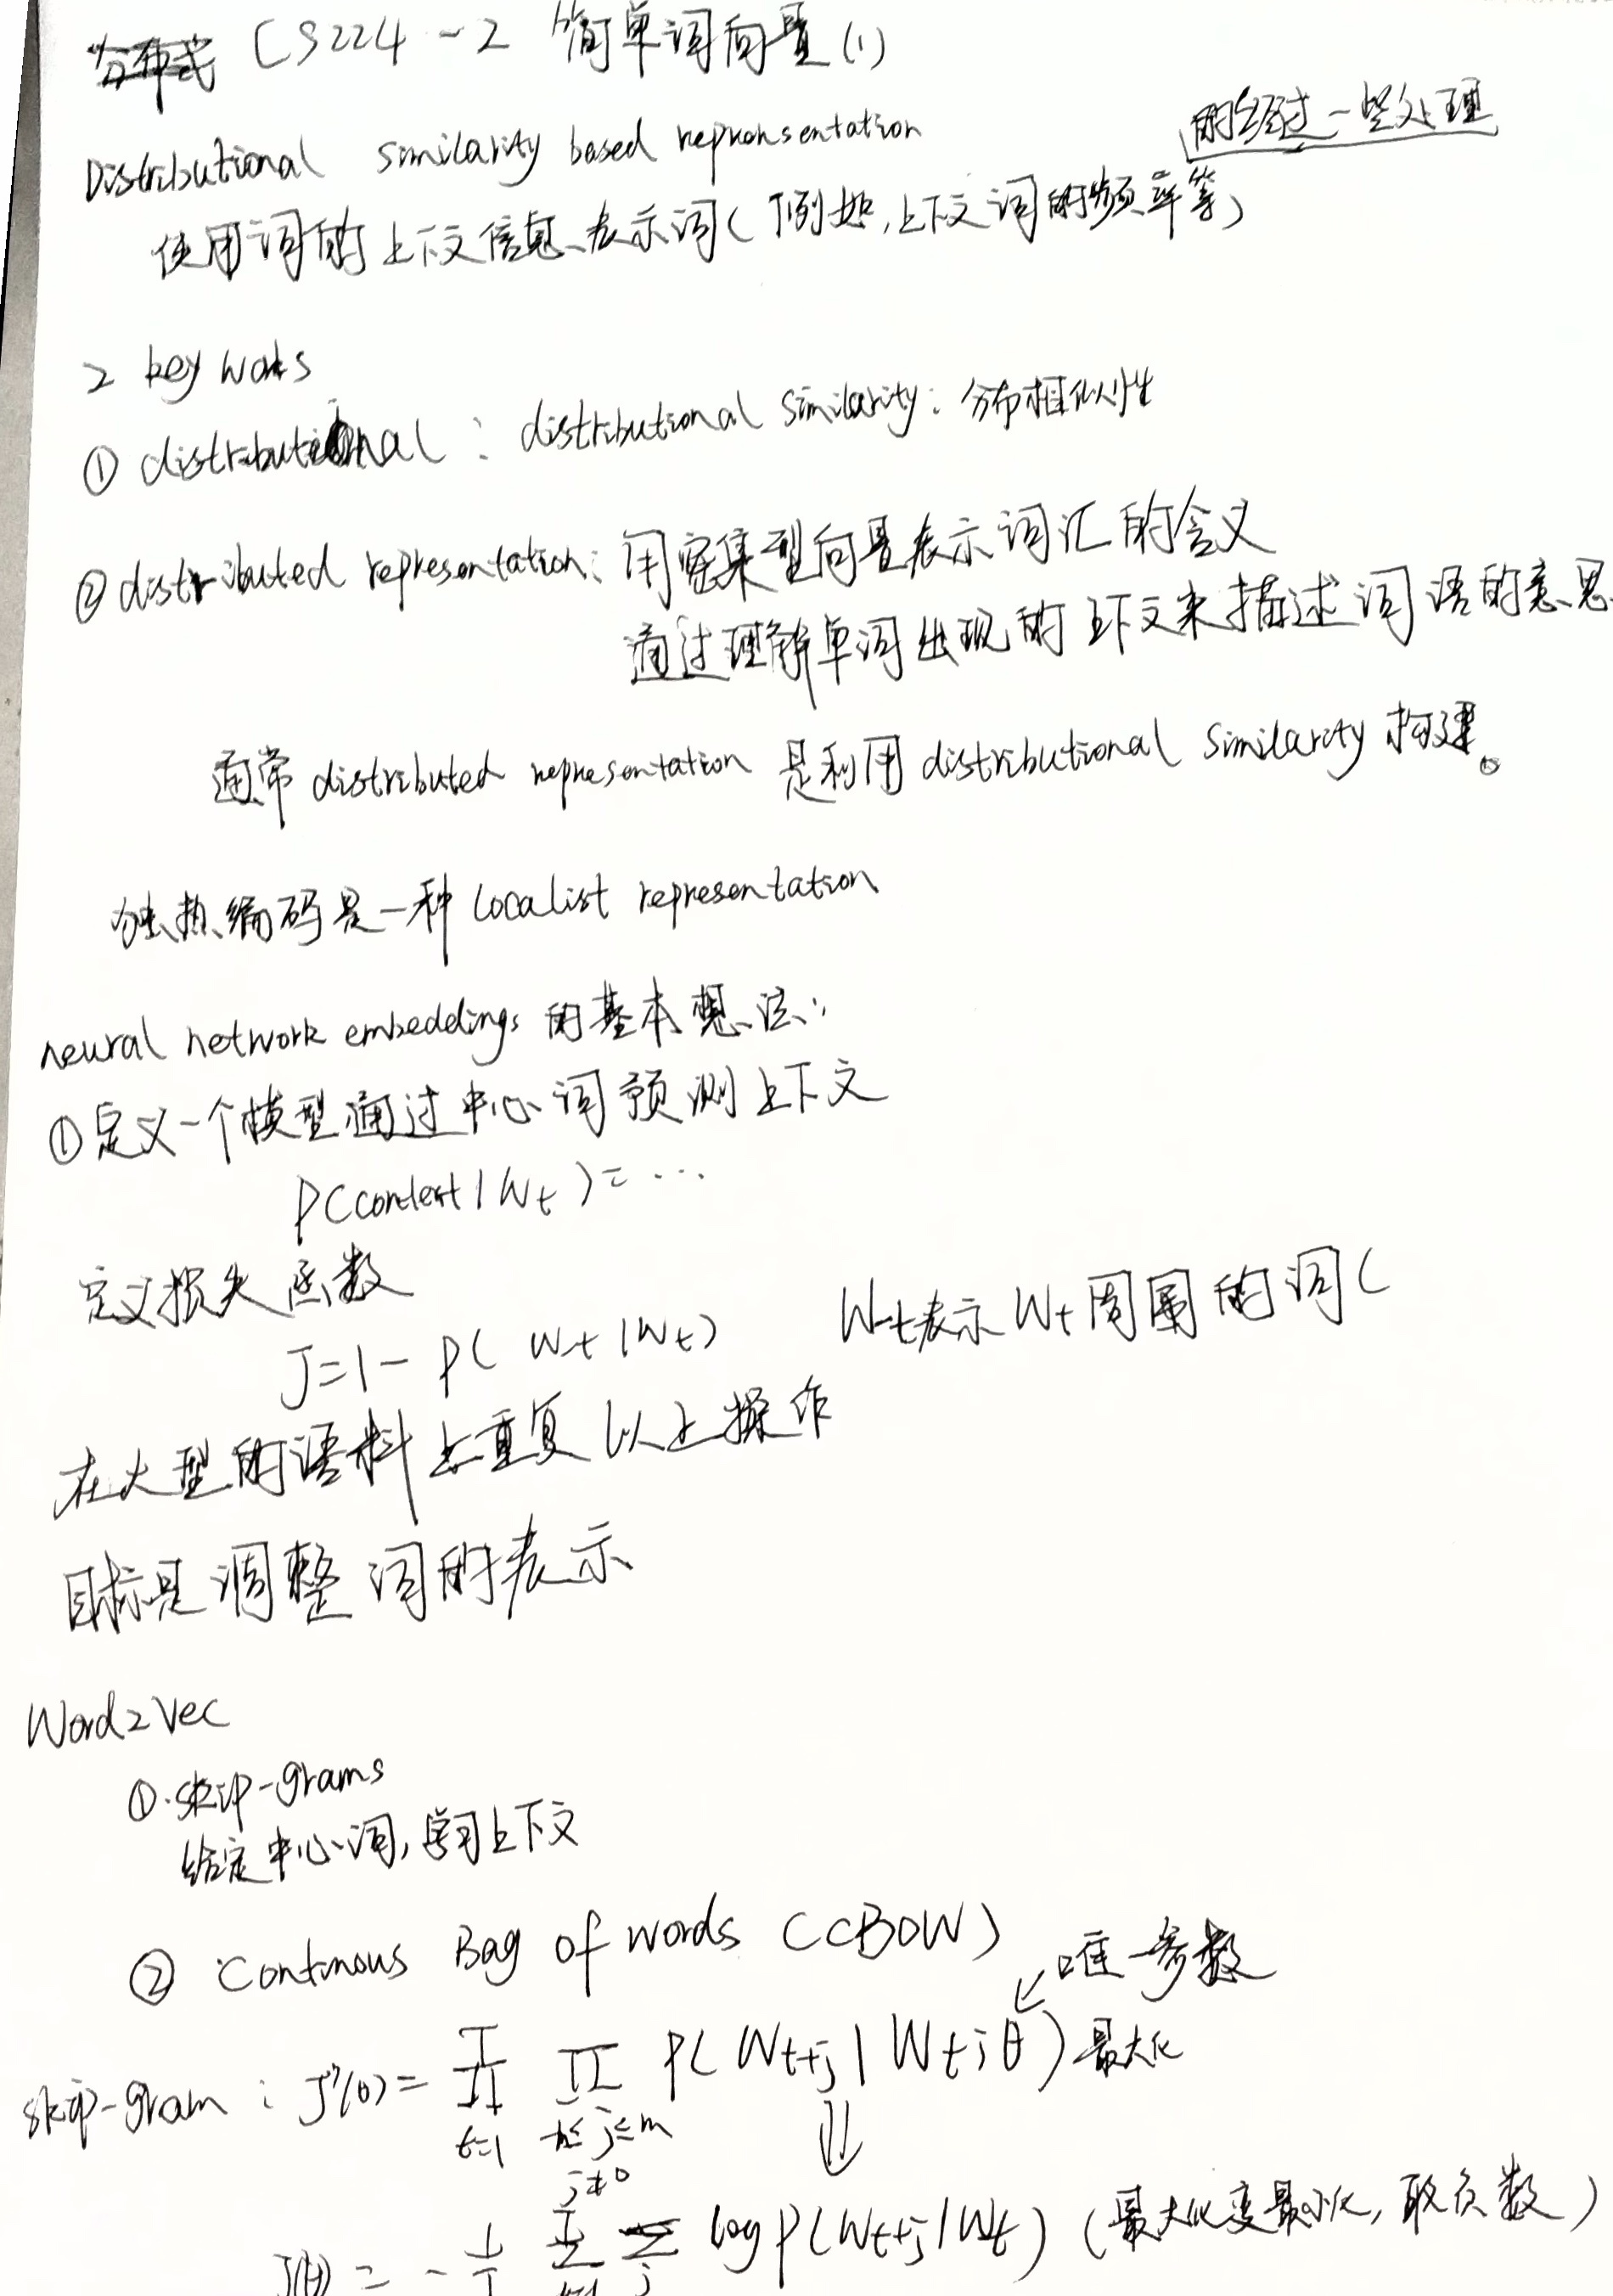 CS224 - 2 简单词向量(1)
Distributional similarity based representation
的经过一些处理
使用词的上下文信息表示词(例如,上下文词的频率等)
2 key words
① distributional : distributional similarity: 分布相似性
② distributed representation: 用密集型向量表示词汇的含义
通过理解单词出现的上下文来描述词语的意思
通常 distributed representation 是利用 distributional similarity 构建。
独热编码是一种 localist representation
neural network embeddings 的基本想法:
①定义一个模型通过中心词预测上下文
P(context|Wt)=…
定义损失函数
J=1-P(W-t|Wt) W-t表示Wt周围的词(
在大型的语料上重复以上操作
目标是调整词的表示
Word2Vec
①.skip-grams
给定中心词,学习上下文
② Continous Bag of words (CBOW)
↙唯一参数
skip-gram : J'(θ) = ∏ ∏ P(Wt+j|Wt;θ) 最大化
t=1 -m≤j≤m
j≠0 ⇓
J(θ) = - 1/T ∑ ∑ log P(Wt+j|Wt) (最大化变最小化,取负数)